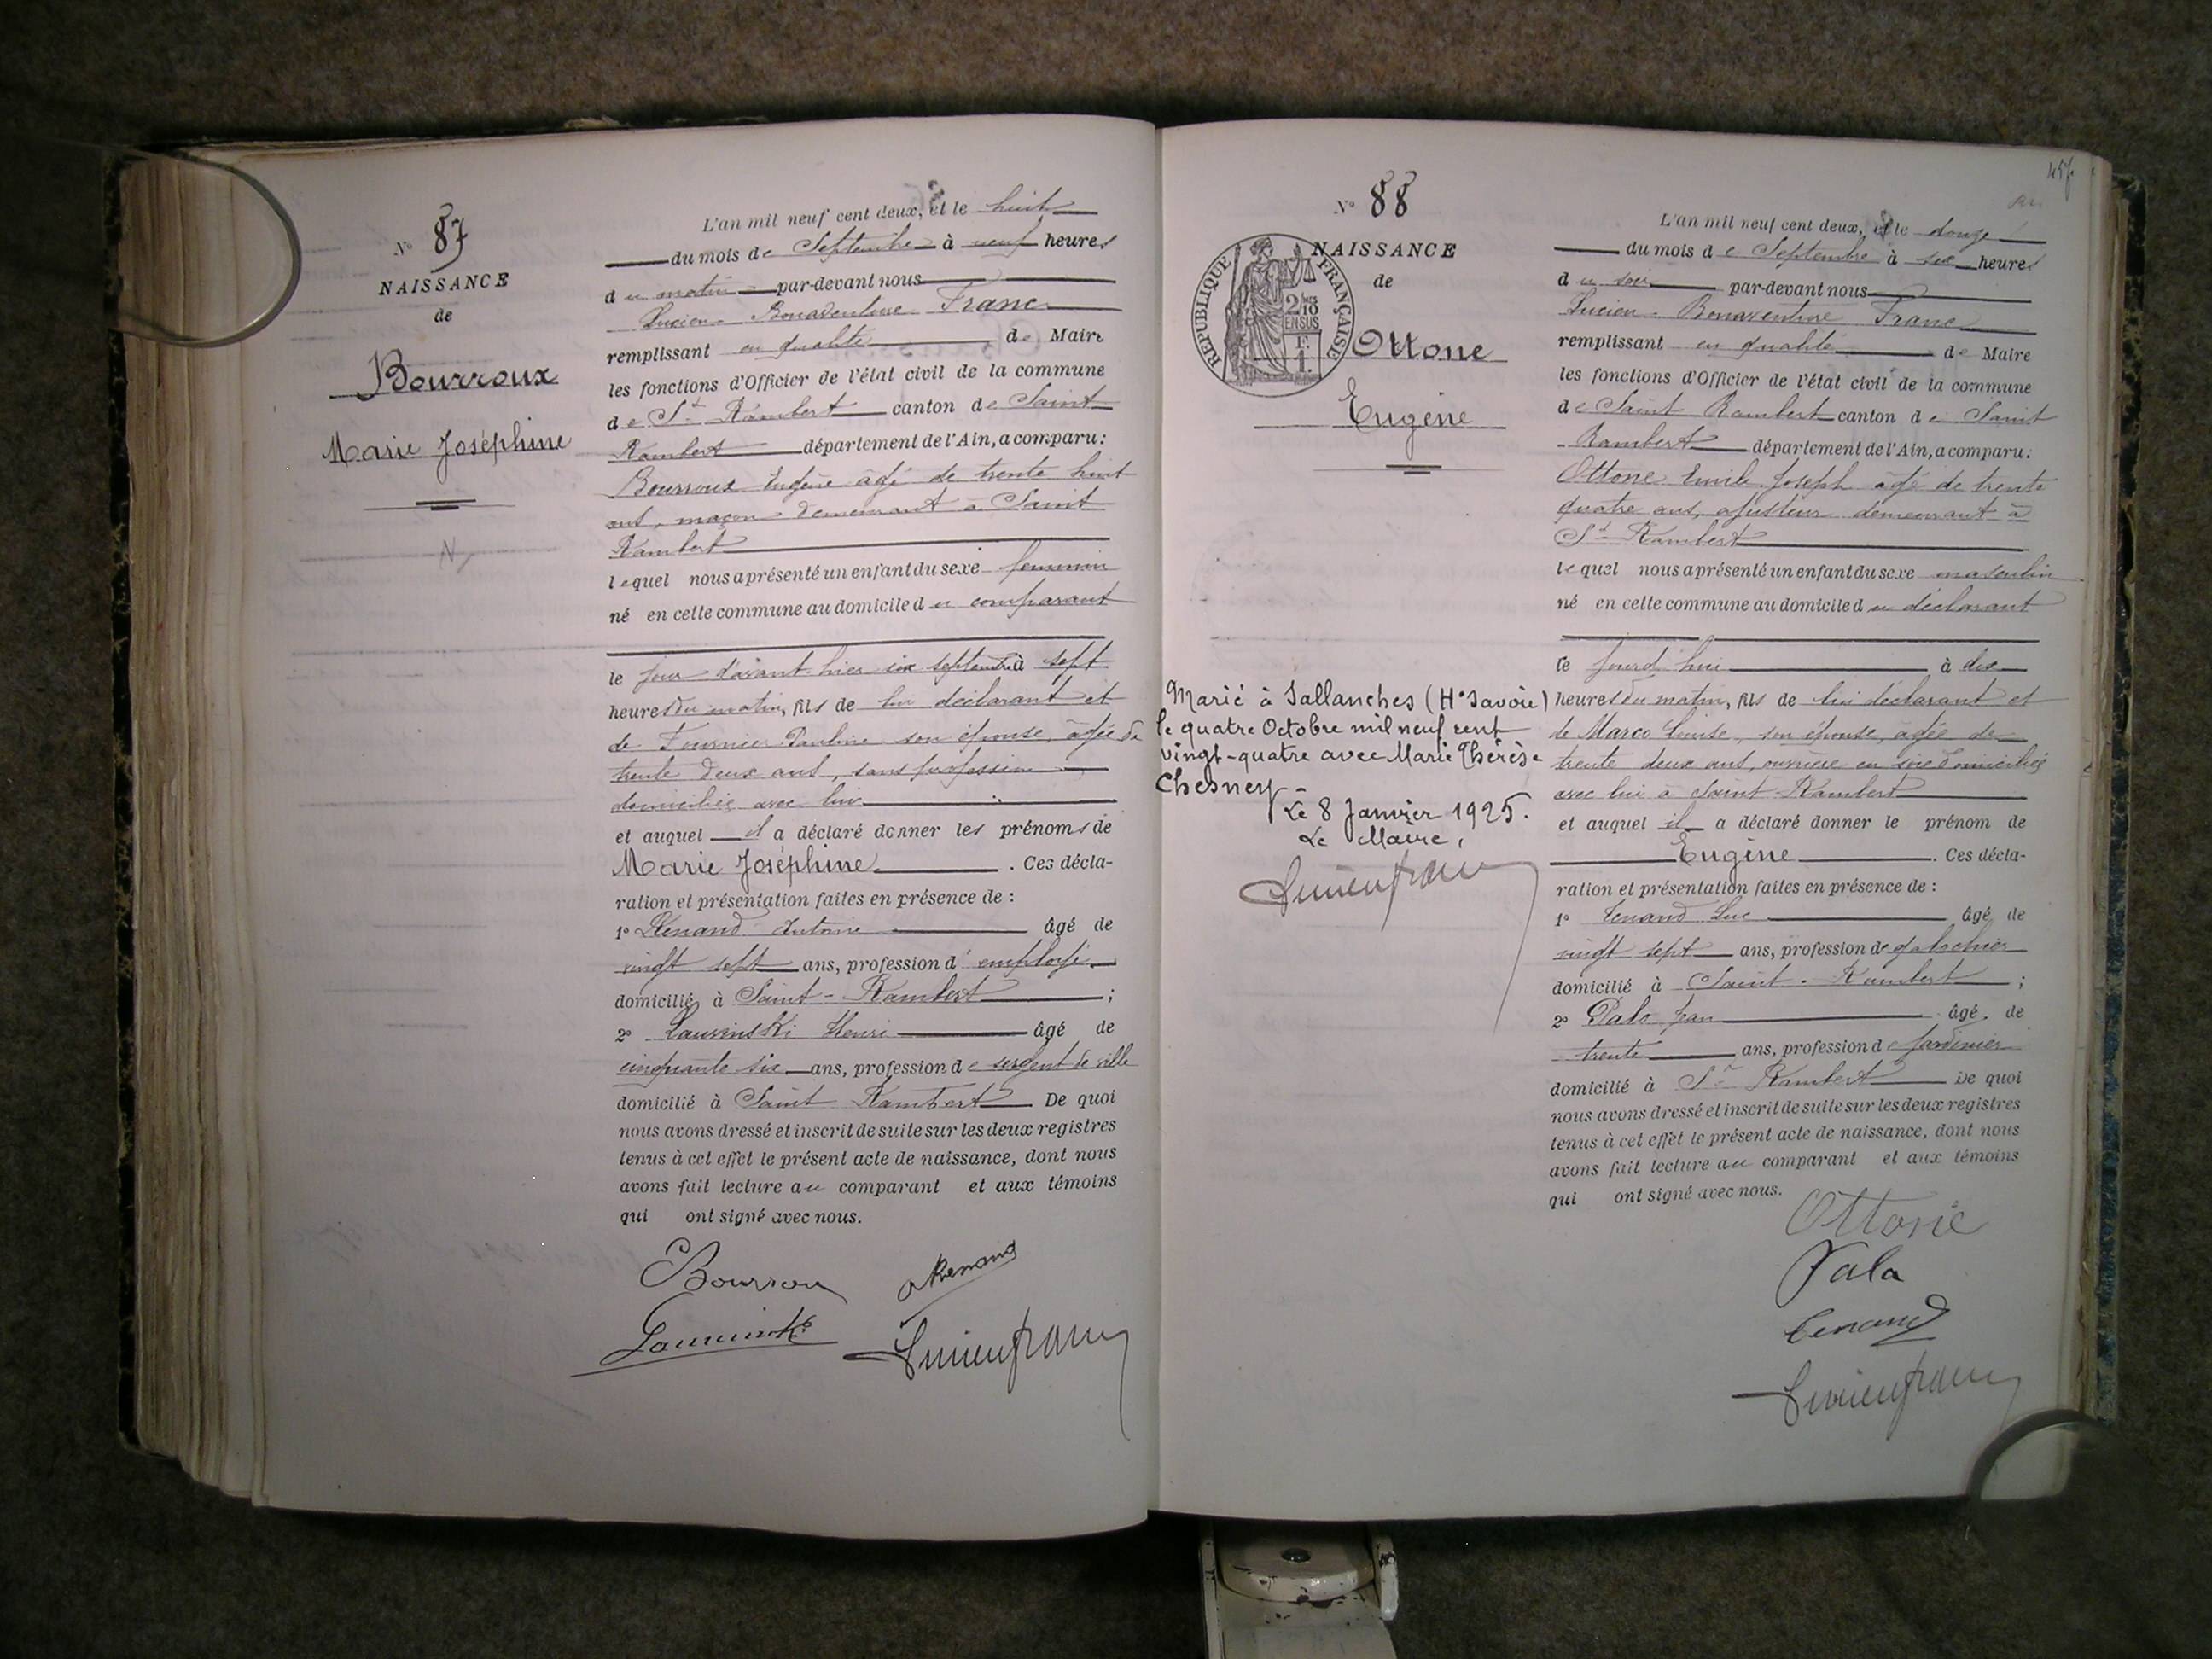 N° 87
NAISSANCE
de
Bourroux
Marie Joséphine
L'an mil neuf cent deux, et le huit
du mois de Septembre à neuf heures
du matin par-devant nous
Lucien Bonaventure Franc
remplissant en qualité de Maire
les fonctions d'Officier de l'état civil de la commune
de St Rambert canton de Saint
Rambert département de l'Ain, a comparu:
Bourroux Eugène âgé de trente huit
ans, maçon demeurant à Saint
Rambert
lequel nous a présenté un enfant du sexe feminin
né en cette commune au domicile du comparant
le jour d'avant hier six septembre à sept
heures du matin, fils de lui déclarant et
de Fournier Pauline son épouse, âgée de
trente deux ans, sans profession
domiciliée avec lui
et auquel il a déclaré donner les prénoms de
Marie Joséphine. Ces décla-
ration et présentation faites en présence de :
1° Renand Antoine âgé de
vingt sept ans, profession d'employé
domicilié à Saint-Rambert ;
2° Henri âgé de
cinquante six ans, profession de sergent de ville
domicilié à Saint Rambert De quoi
nous avons dressé et inscrit de suite sur les deux registres
tenus à cet effet le présent acte de naissance, dont nous
avons fait lecture au comparant et aux témoins
qui ont signé avec nous.
Bourrou Renand
Lucien franc
457
N° 88
NAISSANCE
de
RÉPUBLIQUE FRANÇAISE
2/10 EN SUS
Ottone
Eugène
Marié à Sallanches (Hte Savoie)
le quatre Octobre mil neuf cent
vingt-quatre avec Marie Thérèse
Chesney
Le 8 Janvier 1925.
Le Maire,
Lucien franc
L'an mil neuf cent deux, et le douze
du mois de Septembre à six heures
du soir par-devant nous
Lucien Bonaventure Franc
remplissant en qualité de Maire
les fonctions d'Officier de l'état civil de la commune
de Saint Rambert canton de Saint
Rambert département de l'Ain, a comparu:
Ottone Emile Joseph âgé de trente
quatre ans, ajusteur demeurant à
St Rambert
lequel nous a présenté un enfant du sexe masculin
né en cette commune au domicile du déclarant
ce jourd'hui à dix
heures du matin, fils de lui déclarant et
de Marco Louise, son épouse, âgée de
trente deux ans, ouvrière en soie domiciliée
avec lui à Saint Rambert
et auquel il a déclaré donner le prénom de
Eugène. Ces décla-
ration et présentation faites en présence de :
1° Tenand Luc âgé de
vingt sept ans, profession de galochier
domicilié à Saint-Rambert ;
2° Jean âgé de
trente ans, profession de jardinier
domicilié à St Rambert De quoi
nous avons dressé et inscrit de suite sur les deux registres
tenus à cet effet le présent acte de naissance, dont nous
avons fait lecture au comparant et aux témoins
qui ont signé avec nous.
Ottone
Tenand
Lucien franc